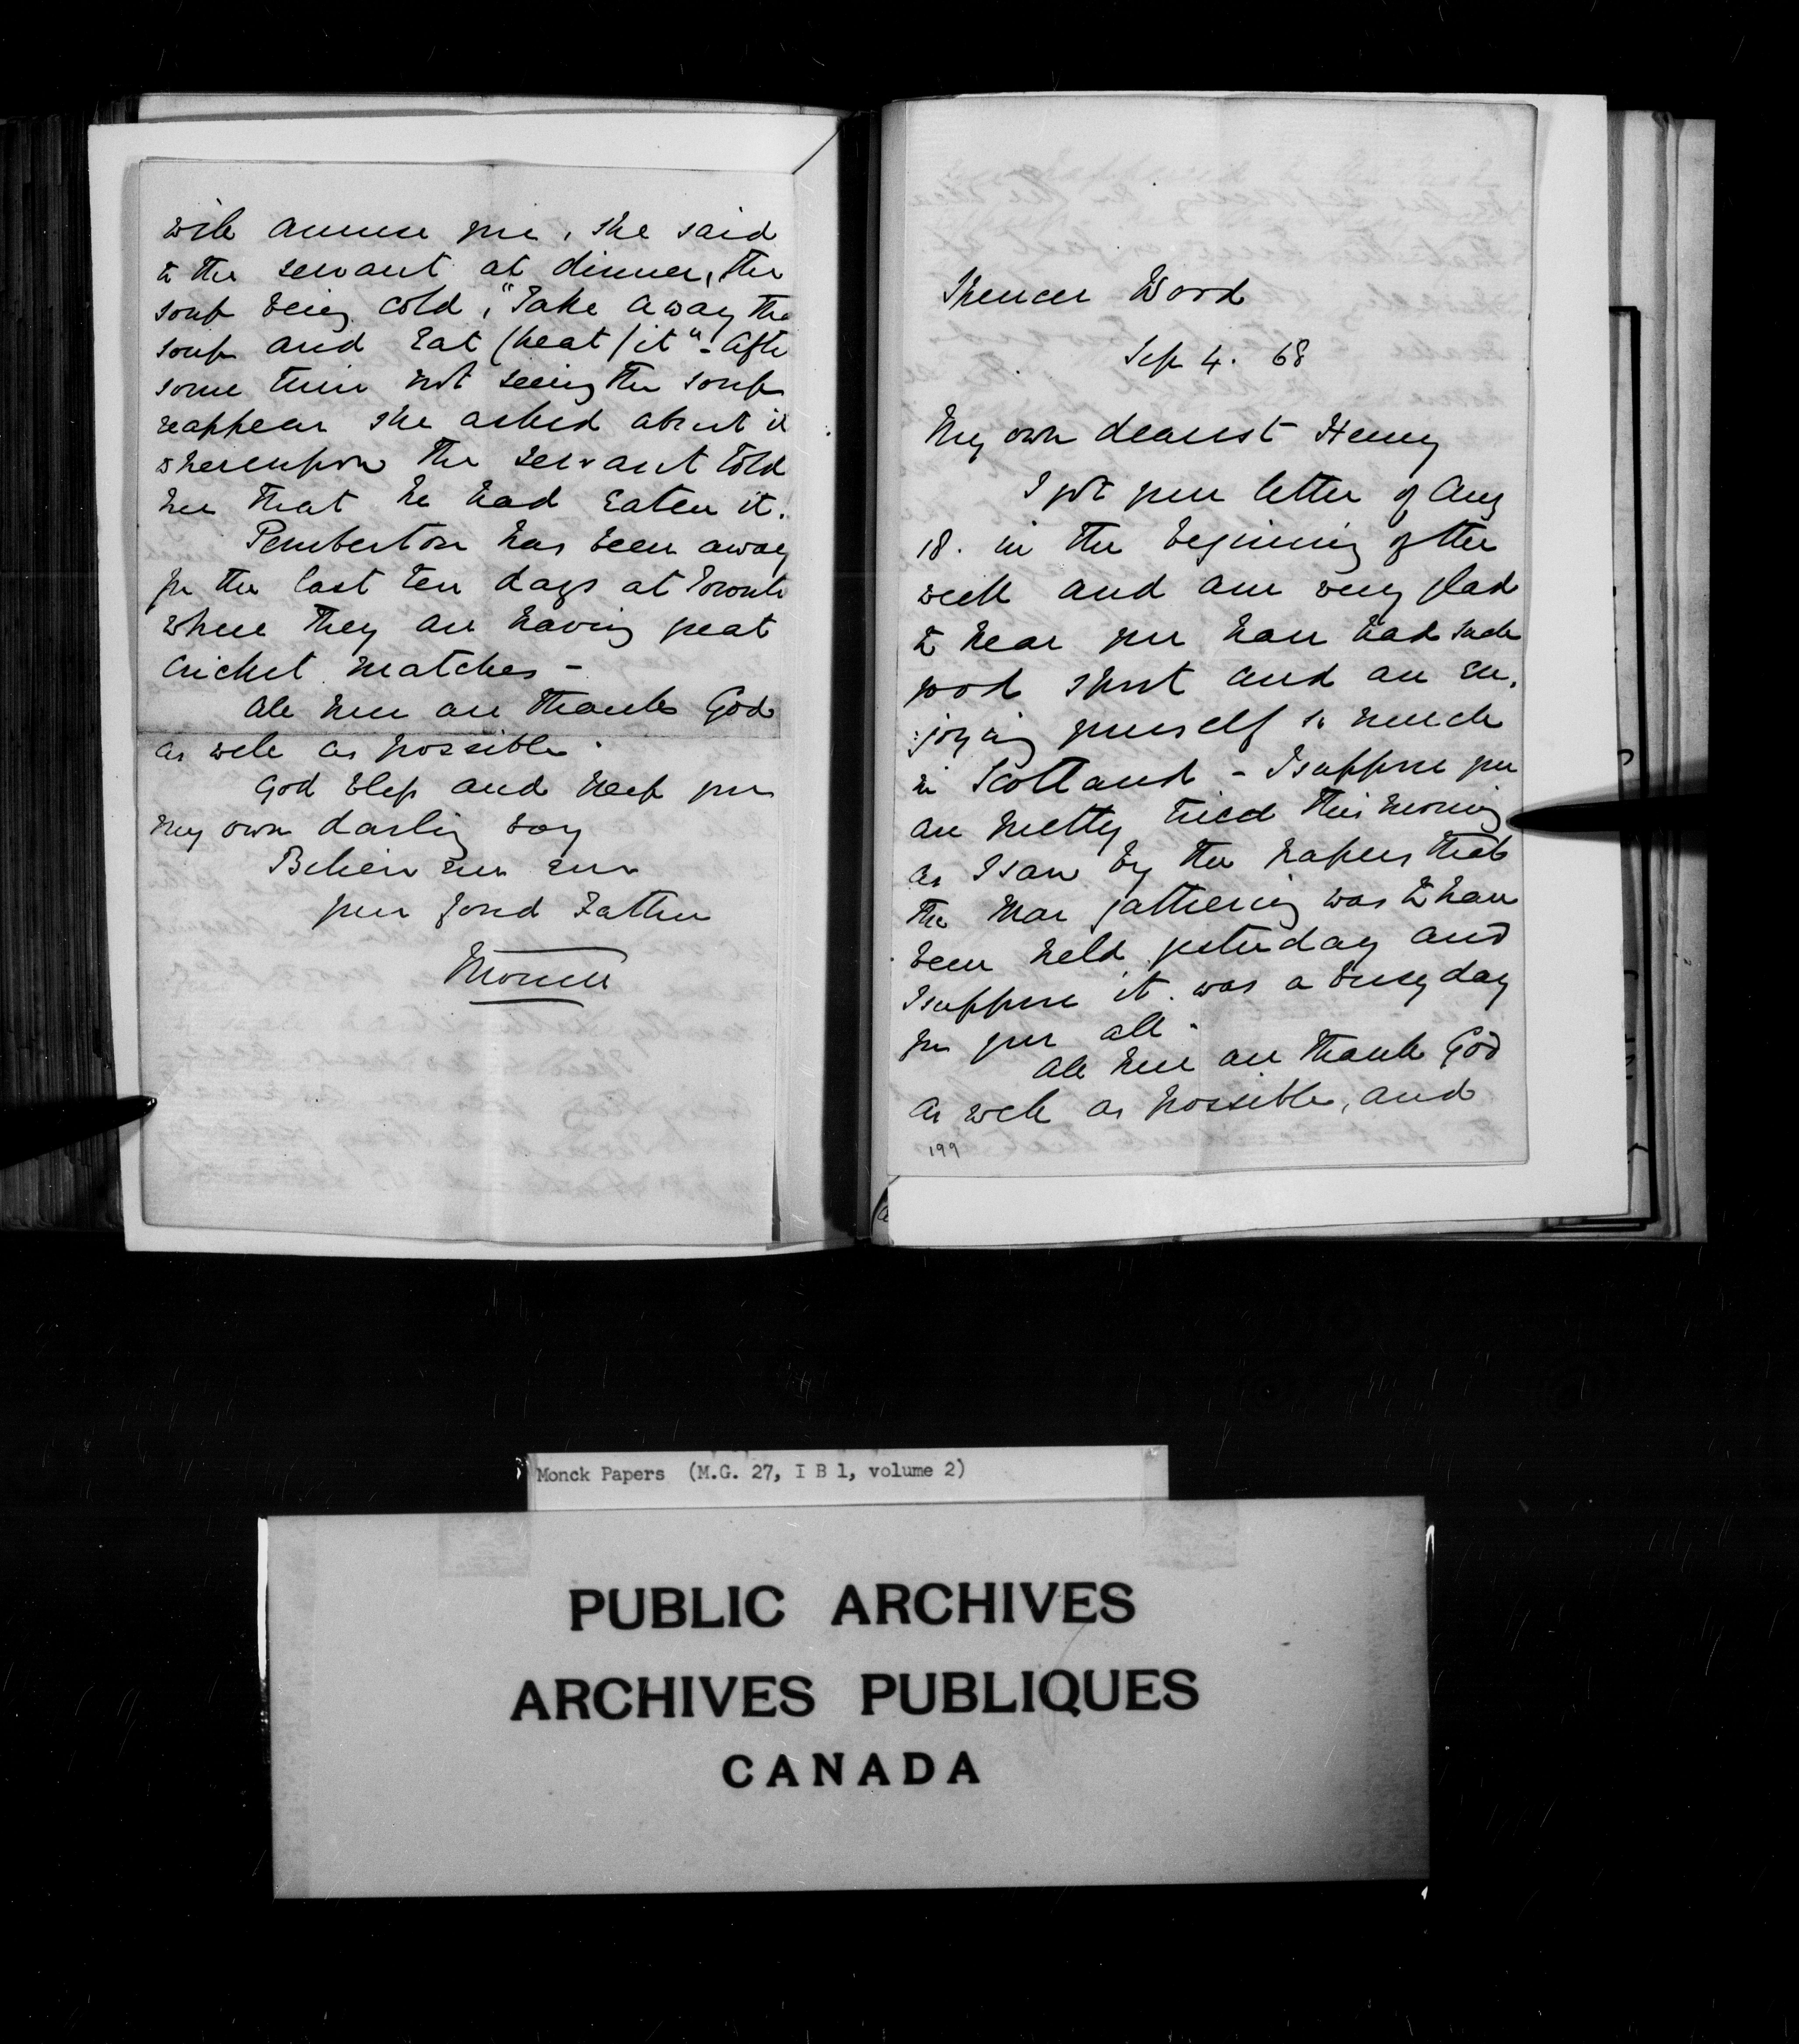 will amuse me, she said
to the servant at dinner, the
soup being cold, "Take away the
soup and eat (heat) it" - After
some time not seeing the soup
reappear she asked about it
whereupon the servant told
her that he had eaten it.
Pemberton has been away
for the last ten days at Toronto
where they are having great
cricket matches -
All here are thank God
as well as possible.
God bless and keep you
my own darling boy
Believe me ever
your fond Father
Monck
Spencer Wood
Sep 4. 68
My own dearest Henry
I got your letter of Aug
18. in the beginning of the
week and am very glad
to hear you have had such
good sport and are en-
:joying yourself so much
in Scotland - I suppose you
are pretty tired this morning
as I saw by the papers that
the Mar gathering was to have
been held yesterday and
I suppose it was a busy day
for you all.
All here are thank God
as well as possible, and
199
Monck Papers (M.G. 27, I B 1, volume 2)
PUBLIC ARCHIVES
ARCHIVES PUBLIQUES
CANADA